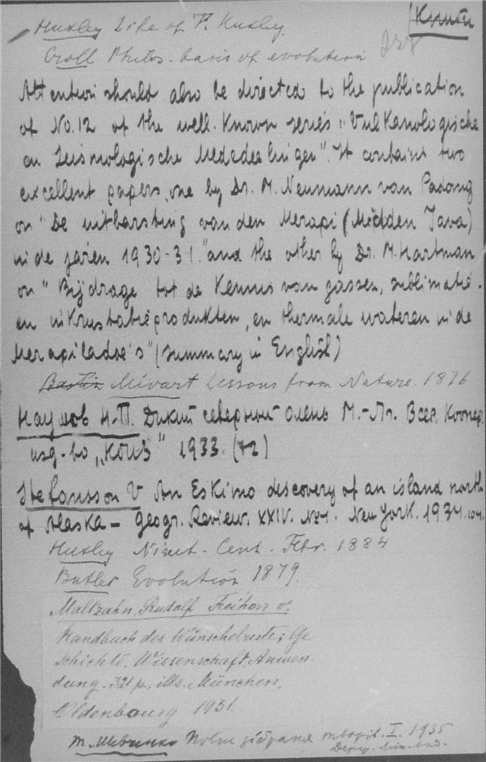 Книги
Huxley Life of T. Huxley.
Croll Philos. basis of evolution
228
Attention should also be directed to the publication
of No. 12 of the well-known series "Vulkanologische
en Seismologische Mededeelingen". It contains two
excellent papers, one by Dr. M. Neumann van Padang
on "De uitbarsting van den Merapi (Midden Java)
in de jaren 1930-31." and the other by Dr. M. Hartman
on "Bijdrage tot de Kennis van gassen, sublimatie-
en inkrustatieprodukten, en thermale wateren in de
Merapiladoe's" (summary in English)
Bastin Mivart Lessons from Nature. 1876
Наумов Н.П. Дикий северный олень М.-Лг. Всер. Коопер.
изд-во „КОИЗ" 1933. (72)
Stefansson V An Eskimo discovery of an island north
of Alaska – Geogr. Review. XXIV. No 1. New York. 1934.
Huxley Ninet. Cent. Febr. 1884
Butler Evolution 1879.
Maltzahn, Rudolf Freiherr v.
Handbuch des Wünschelrute; Ge
schichte, Wissenschaft Anwen-
dung. 321 p. ills. München,
Oldenbourg 1931.
Т. Шевченко Повне зібрання творів. I. 1935
Держ. Літ. вид.